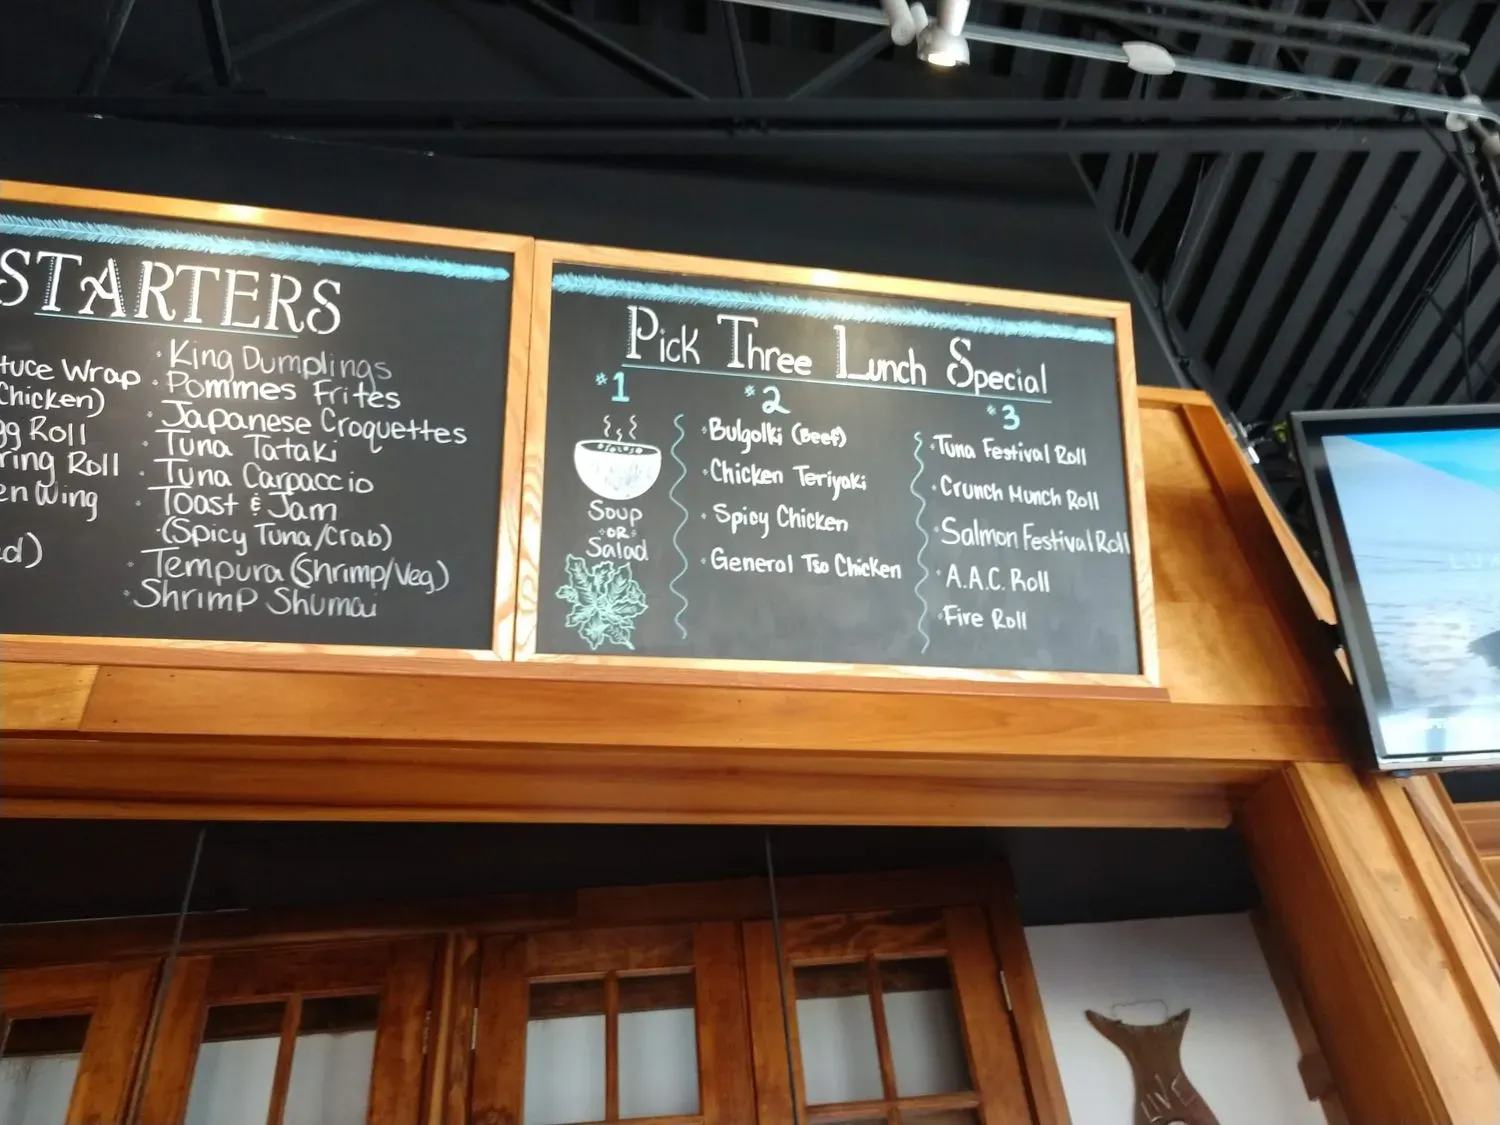 STARTERS
Wrap
Chicken)
Roll
Roll
Wing
· King Dumplings
· Pommes Frites
· Japanese Croquettes
· Tuna Tataki
· Tuna Carpaccio
· Toast & Jam
(Spicy Tuna/Crab)
· Tempura (Shrimp/Veg)
· Shrimp Shumai
Pick Three Lunch Special
#1
Soup
·OR·
Salad
#2
· Bulgolki (Beef)
· Chicken Teriyaki
· Spicy Chicken
· General Tso Chicken
#3
· Tuna Festival Roll
· Crunch Munch Roll
· Salmon Festival Roll
· A.A.C. Roll
· Fire Roll
LIVE